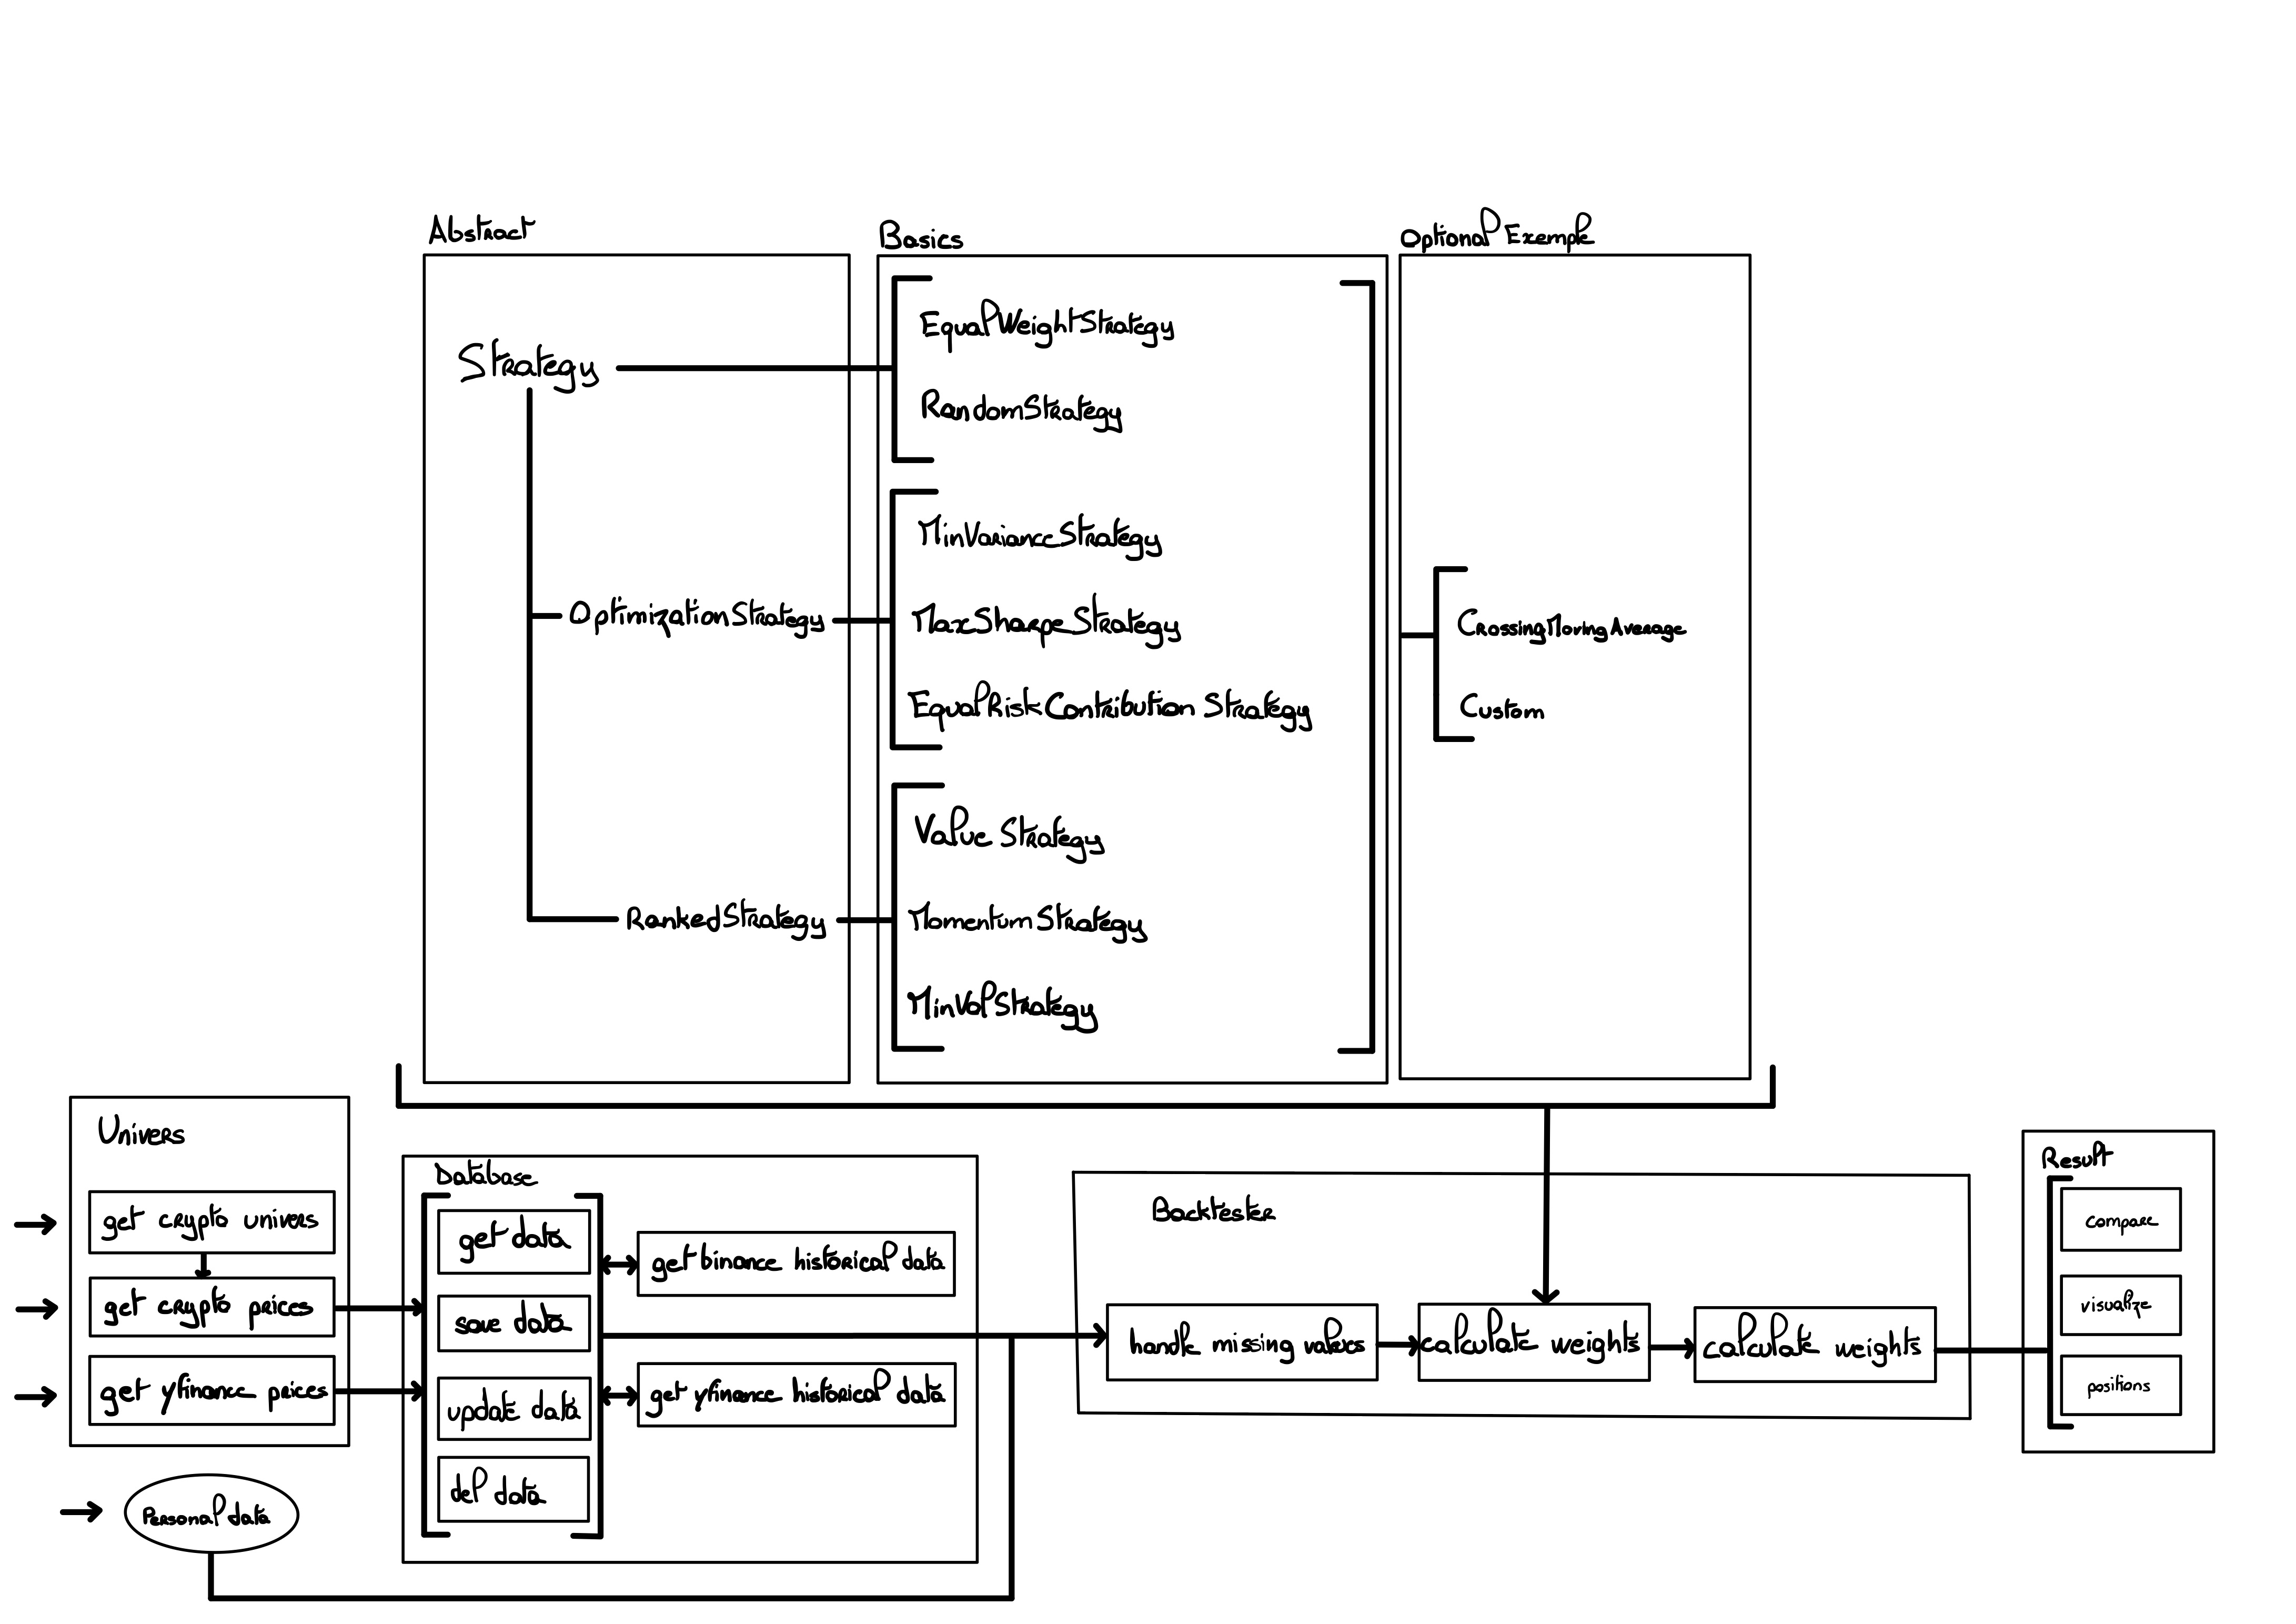 Abstract
Basics
Optional Exemple
Strategy
OptimizationStrategy
RankedStrategy
EqualWeightStrategy
RandomStrategy
MinVarianceStrategy
MaxSharpeStrategy
EqualRiskContribution Strategy
Value Strategy
Momentum Strategy
MinVolStrategy
CrossingMovingAverage
Custom
Univers
get crypto univers
get crypto prices
get yfinance prices
Personal data
Database
get data
save data
update data
del data
get binance historical data
get yfinance historical data
Backtester
handle missing values
calculate weights
calculate weights
Result
compare
visualize
positions